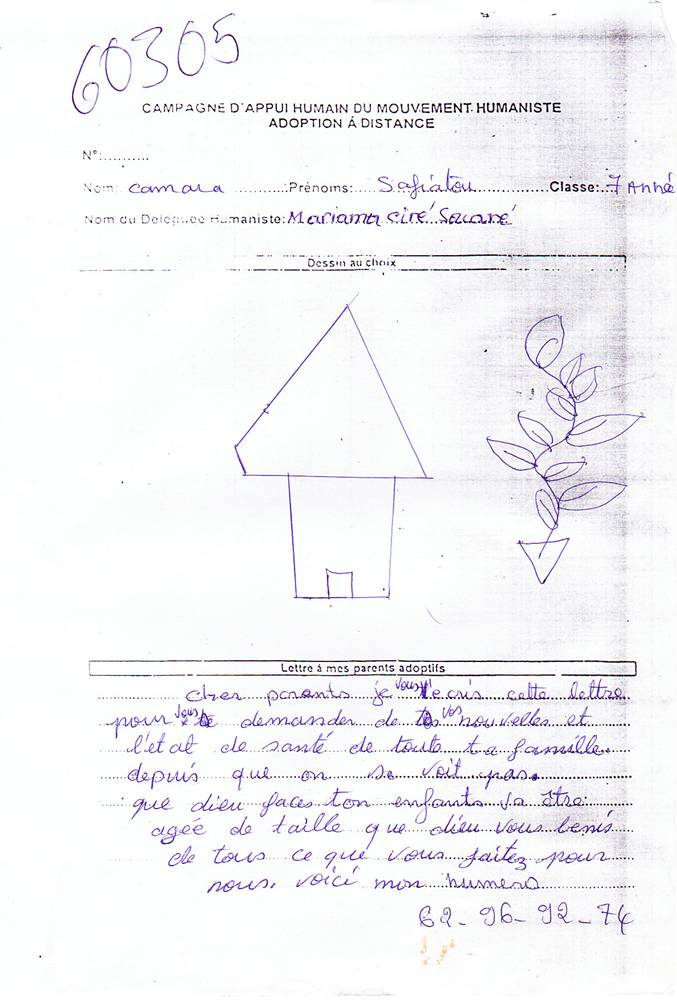 60305
CAMPAGNE D'APPUI HUMAIN DU MOUVEMENT HUMANISTE
ADOPTION À DISTANCE
N°:..........
Nom: camara ............Prénoms:....Safiatou................Classe:.7 Année
Nom du Deleguée Humaniste: Mariama ciré Souaré
Dessin au choix
Lettre à mes parents adoptifs
cher parents je vous ecris cette lettre
pour vous demander de vos nouvelles et
l'état de santé de toute ta famille.
depuis que on se voit pas.
que dieu faces ton enfants va être
agée de taille que dieu vous benis
de tous ce que vous faitez pour
nous. voici mon numero
62-96-92-74